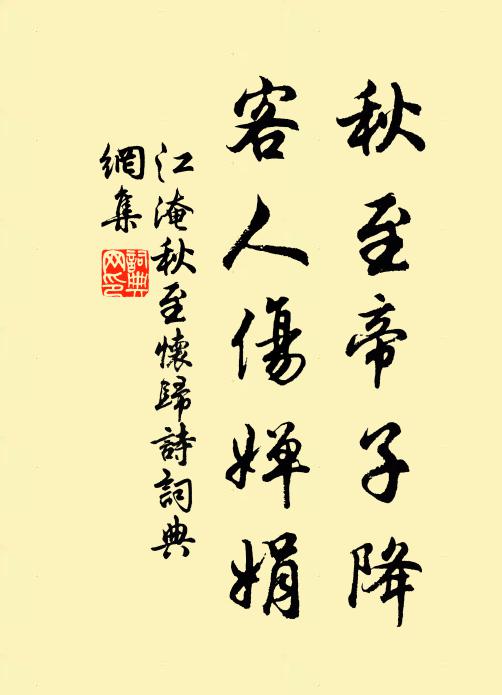 秋至帝子降
客人傷嬋娟
江淹秋至懷歸詩詞典
網集
詞典
网印